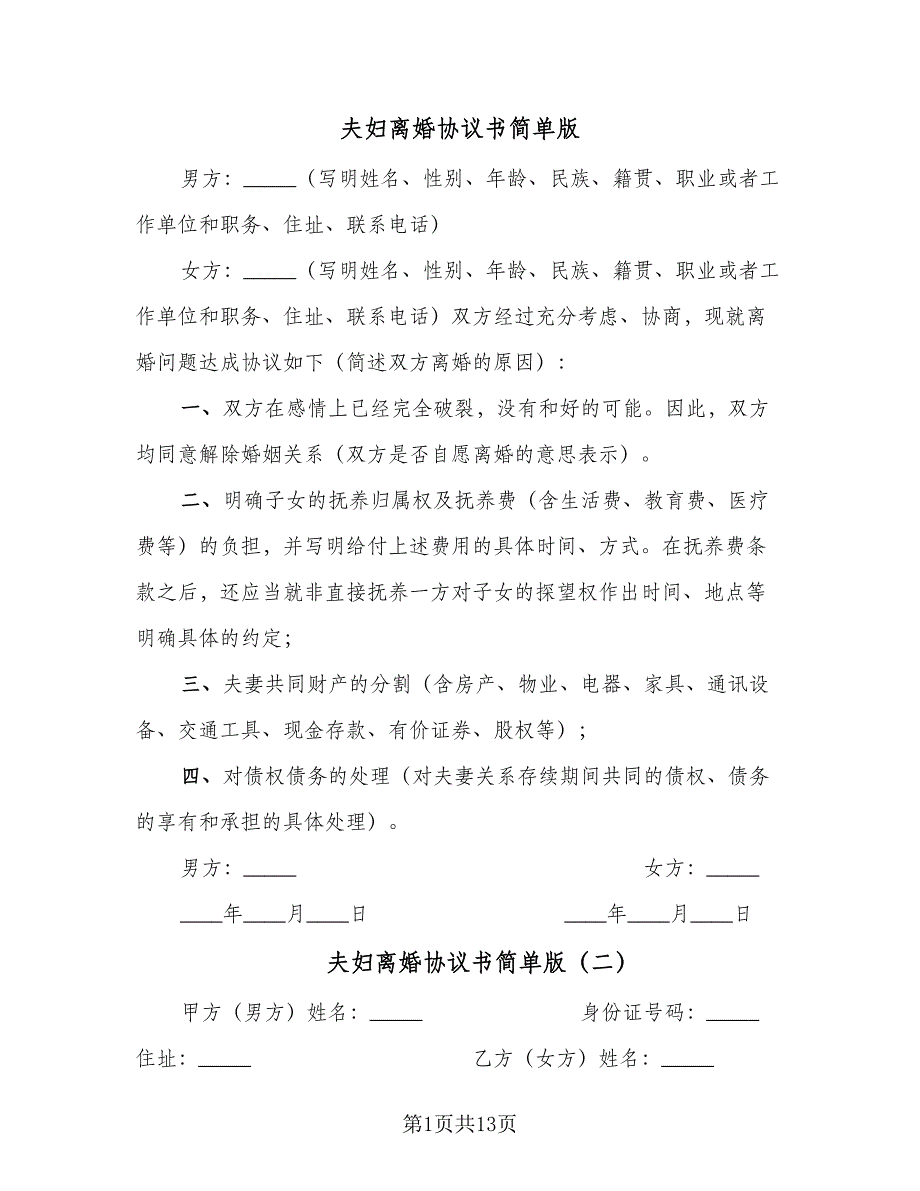 夫妇离婚协议书简单版
男方：_____（写明姓名、性别、年龄、民族、籍贯、职业或者工
作单位和职务、住址、联系电话）
女方：_____（写明姓名、性别、年龄、民族、籍贯、职业或者工
作单位和职务、住址、联系电话）双方经过充分考虑、协商，现就离
婚问题达成协议如下（简述双方离婚的原因）：
一、双方在感情上已经完全破裂，没有和好的可能。因此，双方
均同意解除婚姻关系（双方是否自愿离婚的意思表示）。
二、明确子女的抚养归属权及抚养费（含生活费、教育费、医疗
费等）的负担，并写明给付上述费用的具体时间、方式。在抚养费条
款之后，还应当就非直接抚养一方对子女的探望权作出时间、地点等
明确具体的约定；
三、夫妻共同财产的分割（含房产、物业、电器、家具、通讯设
备、交通工具、现金存款、有价证券、股权等）；
四、对债权债务的处理（对夫妻关系存续期间共同的债权、债务
的享有和承担的具体处理）。
男方：_____ 女方：_____
____年____月____日 ____年____月____日
夫妇离婚协议书简单版（二）
甲方（男方）姓名：_____ 身份证号码：_____
住址：_____ 乙方（女方）姓名：_____
第1页共13页